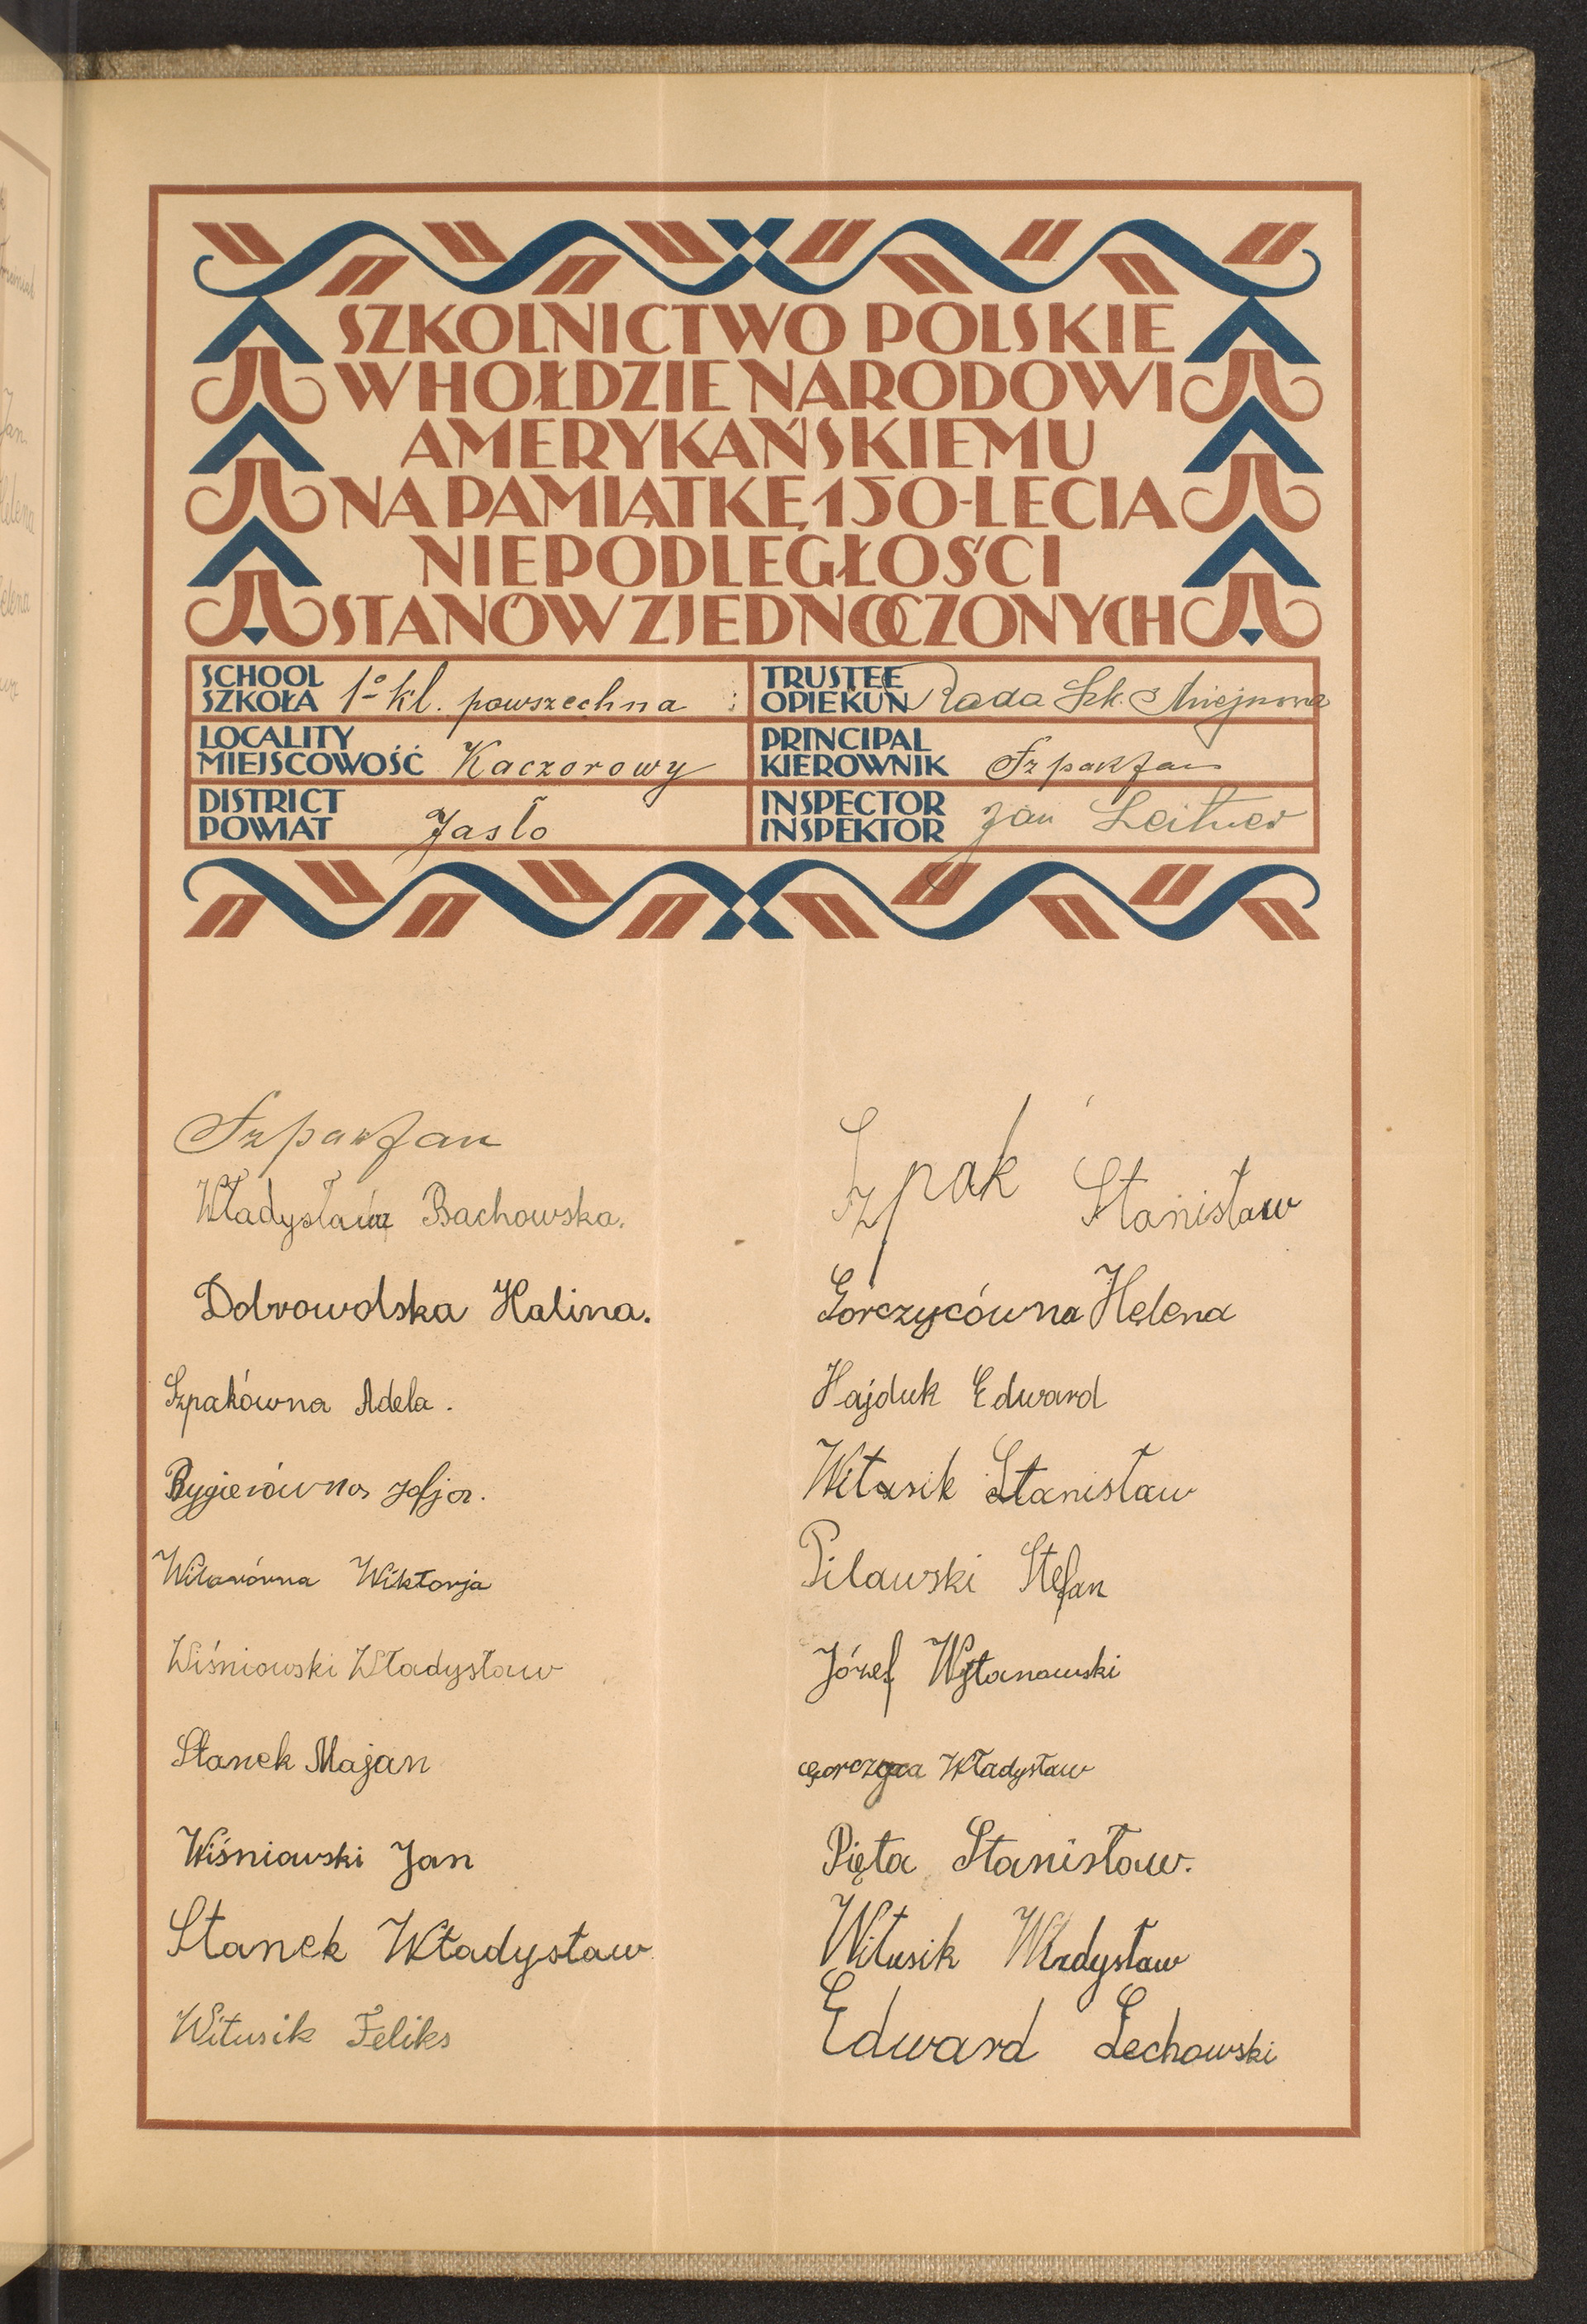 SZKOLNICTWO POLSKIE
W HOŁDZIE NARODOWI
AMERYKAŃSKIEMU
NA PAMIĄTKĘ 150-LECIA
NIEPODLEGŁOŚCI
STANÓW ZJEDNOCZONYCH
SCHOOL
SZKOŁA 1-kl. powszechna
TRUSTEE
OPIEKUN Rada Szk. Miejscowa
LOCALITY
MIEJSCOWOŚĆ Kaczorowy
PRINCIPAL
KIEROWNIK Szpak Jan
DISTRICT
POWIAT Jasło
INSPECTOR
INSPEKTOR Jan Leitner
Szpak Jan
Władysława Bachowska.
Dobrowolska Halina.
Szpakówna Adela.
Bygierówna Zofja.
Wiktorja
Wiśniowski Władysław
Stanek Majan
Wiśniowski Jan
Stanek Władysław
Witusik Feliks
Szpak Stanisław
Gorczycówna Helena
Hajduk Edward
Witusik Stanisław
Pilawski Stefan
Józef Wytanowski
Gorczyca Władysław
Pięta Stanisław.
Witusik Władysław
Edward Lechowski